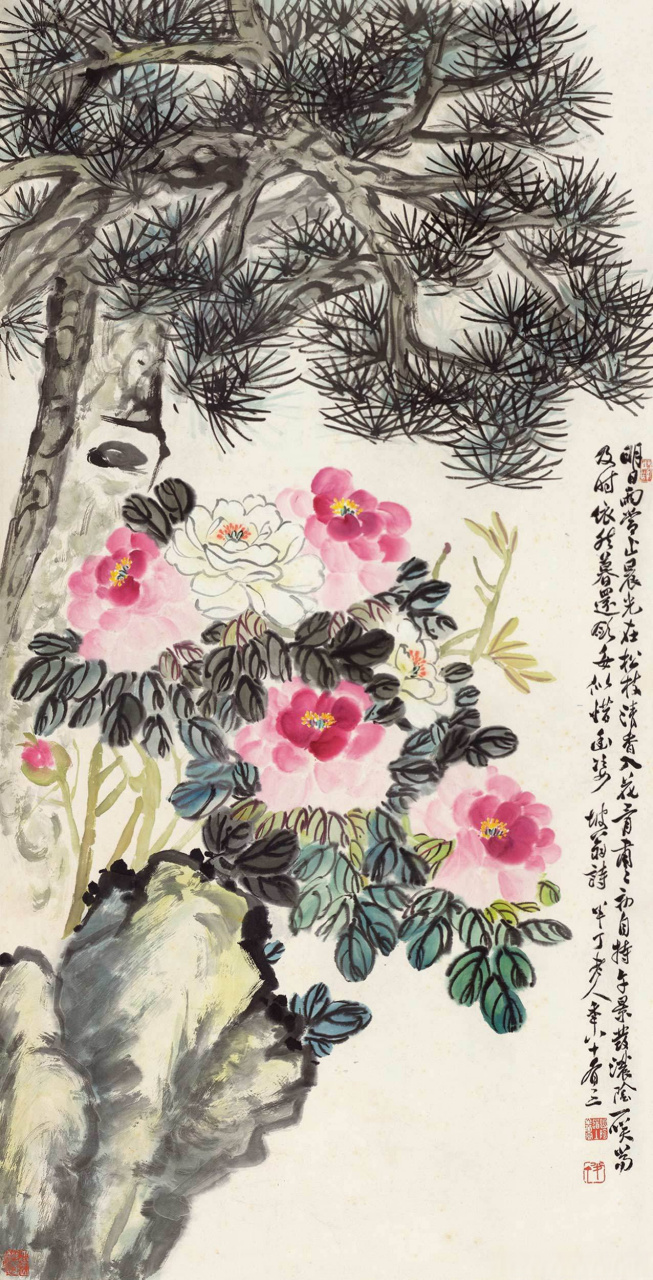 明日雨當止晨光在松枝清香入花骨肅〻初自持午景發濃陰一笑當
及时依然暮還斂似惜幽姿 坡翁詩 半丁老人年八十有三